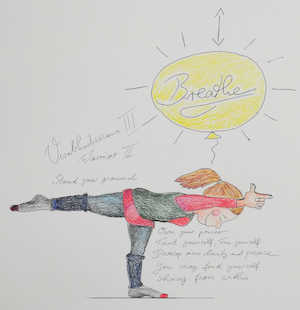 Breathe
Virabhadrasana III
Warrior III
Stand your ground
Own your power
Trust yourself,
Develop your clarity and peace
You may find yourself
Shining from within